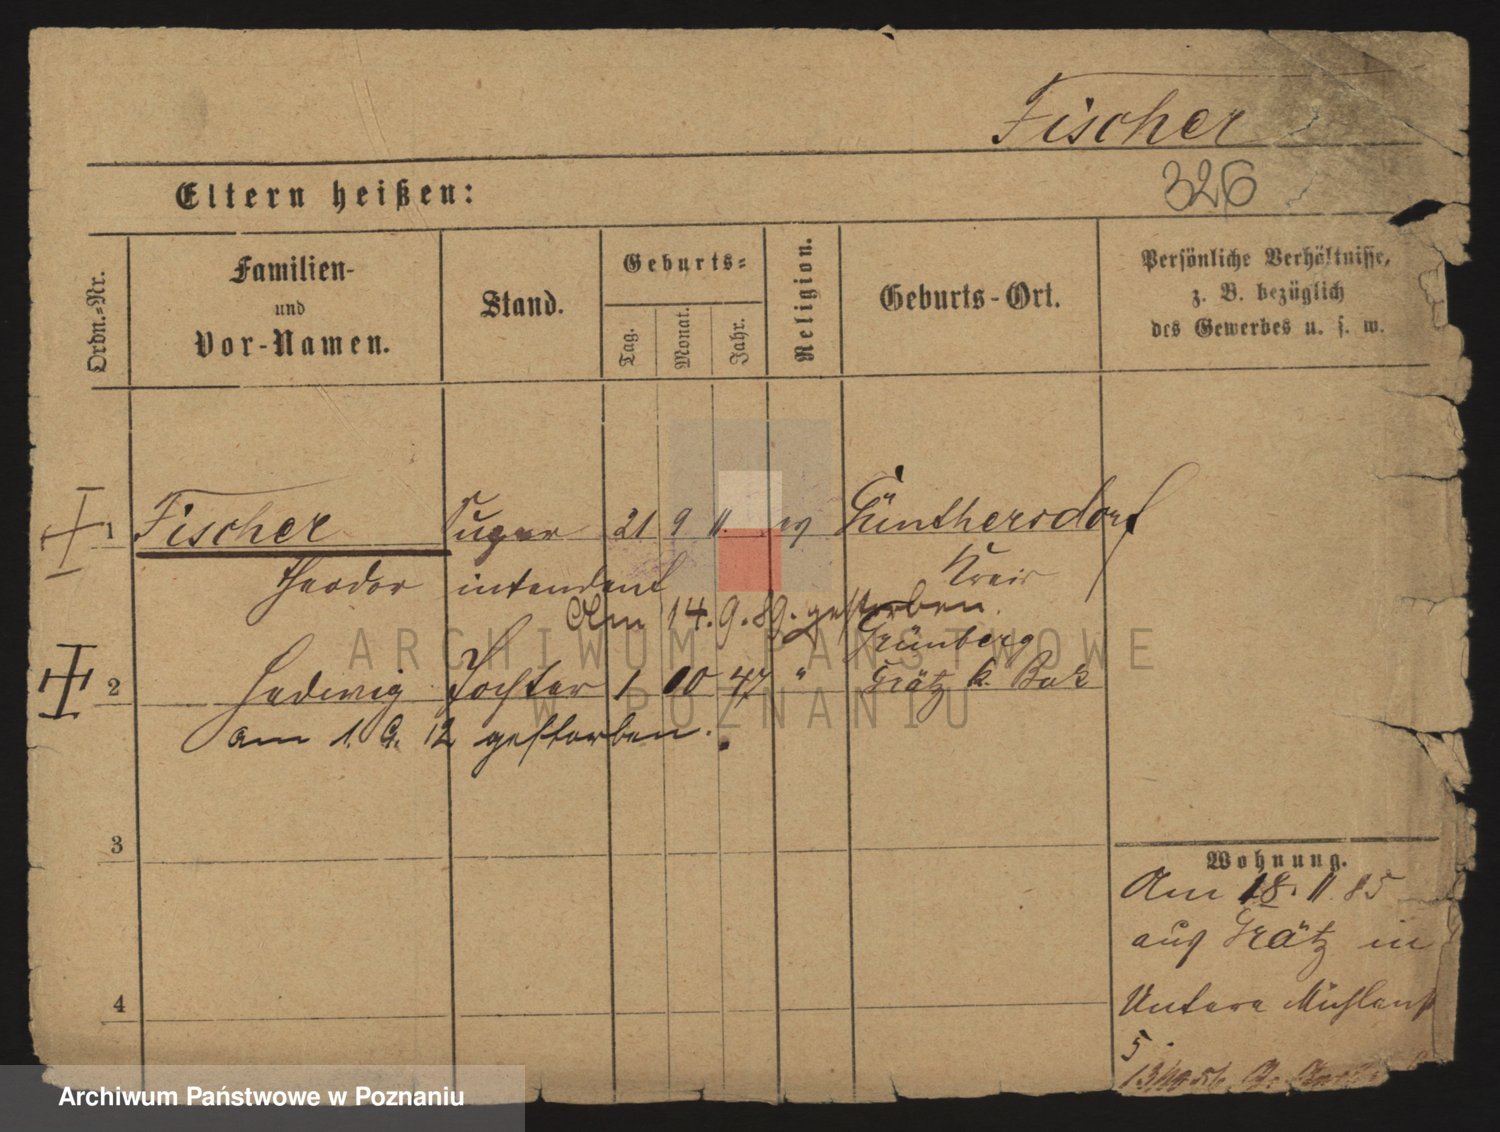 Fischer
326
Eltern heißen:
Ordn.-Nr.
Familien-
und
Vor-Namen.
Stand.
Geburts-
Tag.
Monat.
Jahr.
Religion.
Geburts-Ort.
Persönliche Verhältnisse,
z. B. bezüglich
des Gewerbes u. s. w.
1 Fischer Super 21 9 11. ev Günthersdorf
Theodor intendent Kreis
Am 14. 9. 89. gestorben.
Grünberg
2 Hedwig Tochter 1 10 47 " Grätz k. Buk
am 1. 9. 12 gestorben.
3
4
Wohnung.
Am 18. 11. 85
aus Grätz in
Untere Mühlenst
5
ARCHIWUM PAŃSTWOWE
W POZNANIU
Archiwum Państwowe w Poznaniu